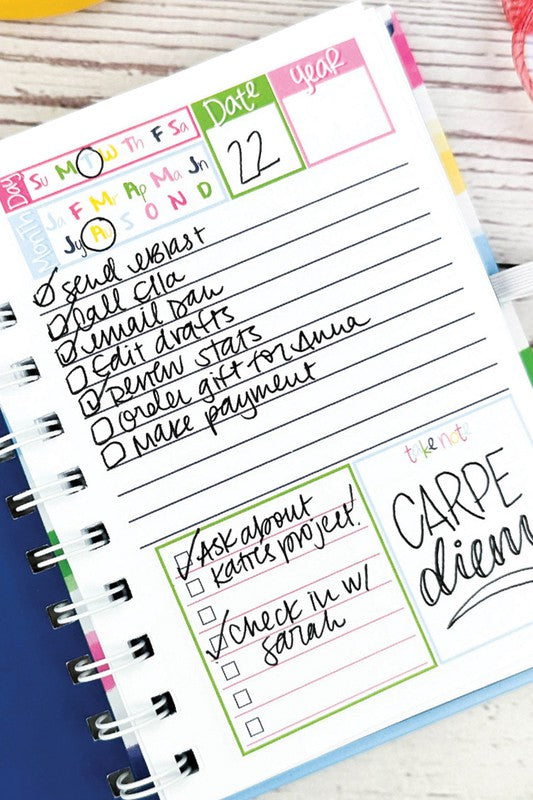 Day
Su M T W Th F Sa
Month
Ja F Mr Ap Ma Jn
Jy Au S O N D
Date
22
Year
send eBlast
Call Ella
email Dan
Edit drafts
Review stats
Order gift for Anna
Make payment
Ask about
Katie's project!
Check in w/
Sarah
take note
CARPE
diem